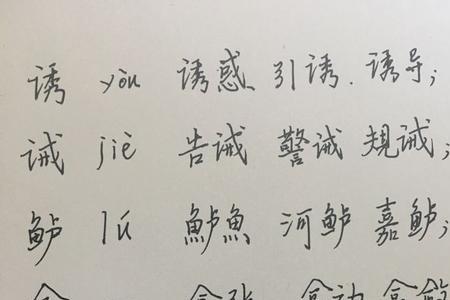 诱 yòu 诱惑 引诱. 诱导;
诫 jiè 告诫 警诫 規诫;
鲈 lú 鲈魚 河鲈 嘉鲈;